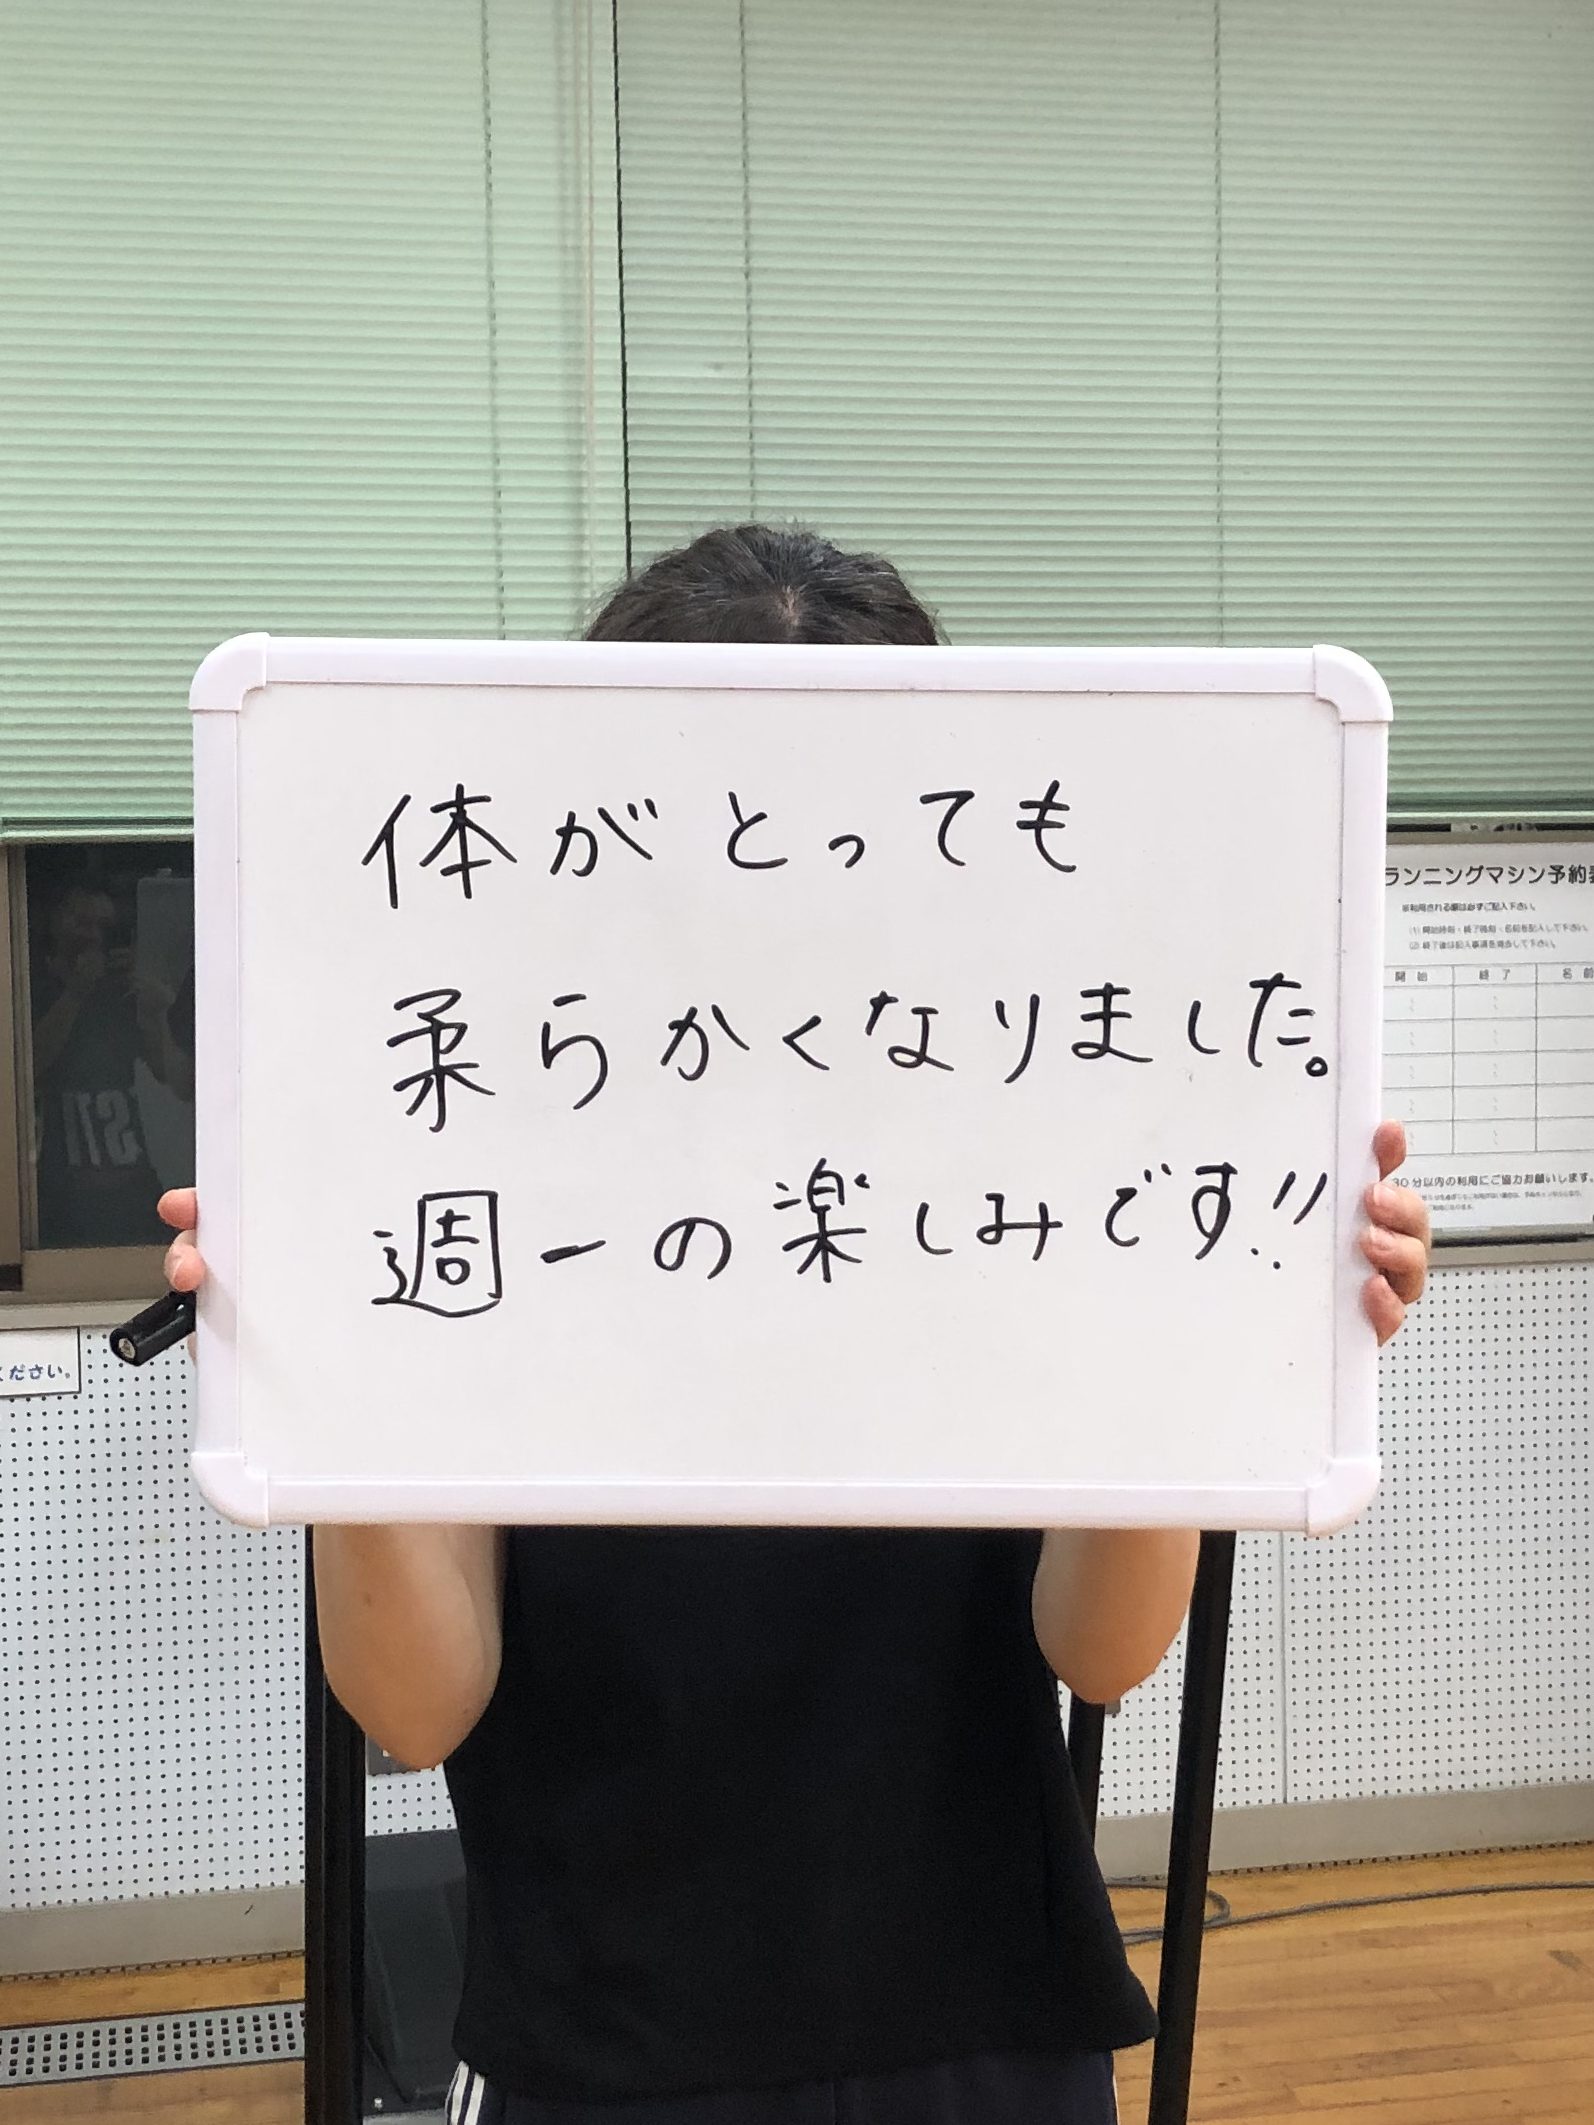 体がとっても
柔らかくなりました。
週一の楽しみです!!
ランニングマシン予約
※利用される際は必ずご記入下さい。
(1) 開始時刻・終了時刻・名前を記入して下さい。
開始 終了 名前
30分以内の利用にご協力お願いします。
ください。